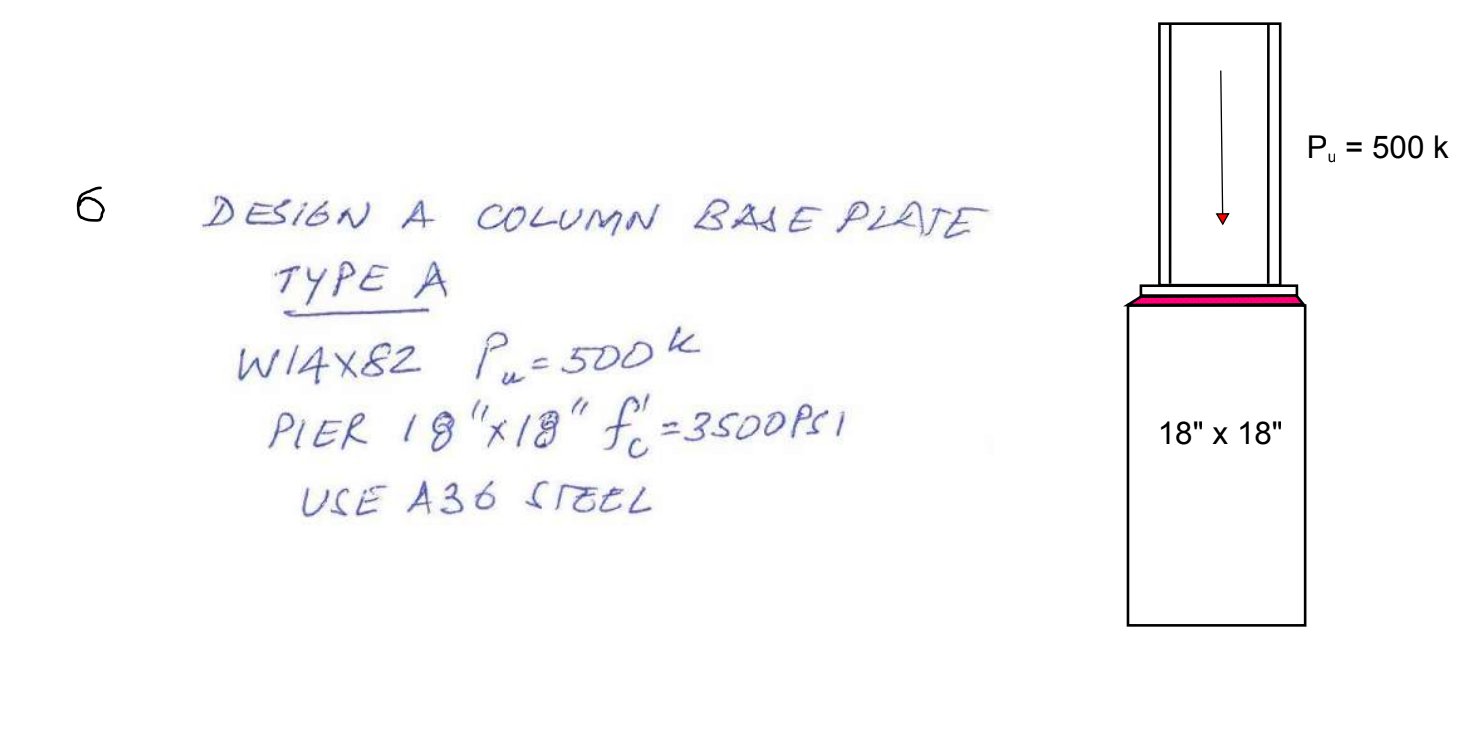 6 DESIGN A COLUMN BASE PLATE
TYPE A
W14X82 Pu = 500 k
PIER 18"x18" f'c = 3500 PSI
USE A36 STEEL
Pu = 500 k
18" x 18"